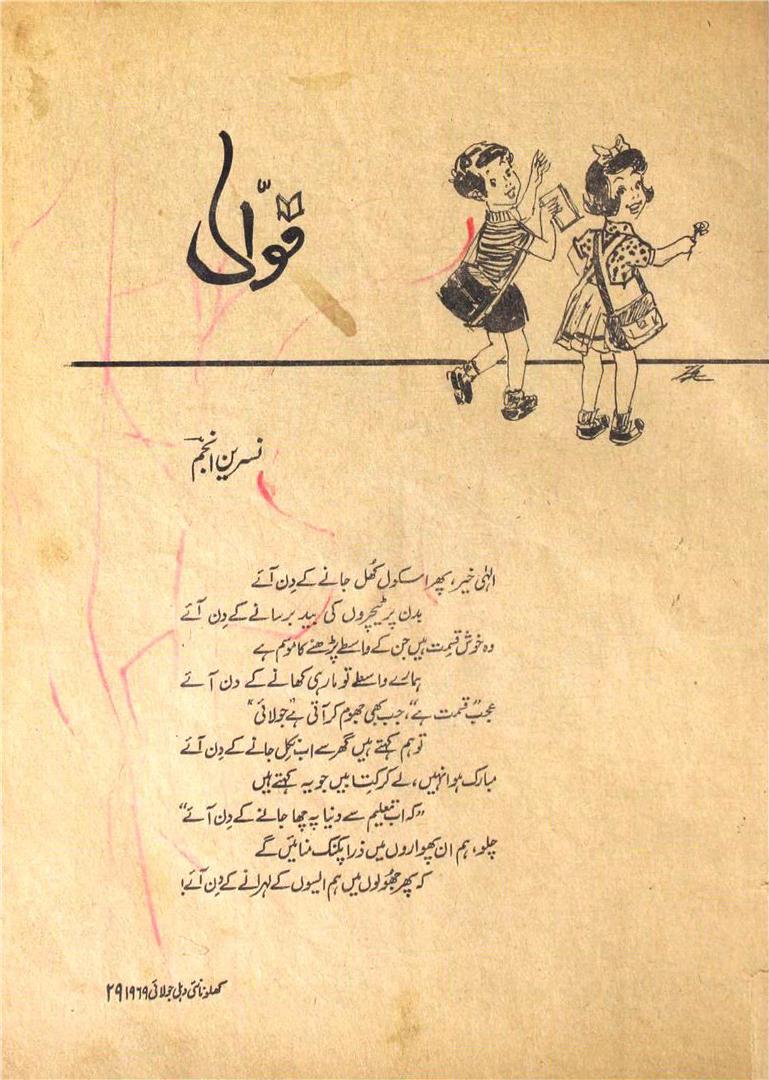 قوّالی
نسرین انجم
الٰہی خیر، پھر اسکول کُھل جانے کے دِن آئے
بدن پر ٹیچروں کی بید برسانے کے دِن آئے
وہ خوش قسمت ہیں جن کے واسطے پڑھنے کا موسم ہے
ہمارے واسطے تو مار ہی کھانے کے دن آئے
عجب "قسمت ہے"، جب بھی جھوم کر آتی ہے "جولائی"
تو ہم کہتے ہیں گھر سے اب نکل جانے کے دِن آئے
مبارک ہو انہیں، لے کر کتابیں جو یہ کہتے ہیں
"کہ اب تعلیم سے دنیا پہ چھا جانے کے دِن آئے"
چلو، ہم ان پھواروں میں ذرا پکنک منائیں گے
کہ پھر جھولوں میں ہم ایسوں کے لہرانے کے دِن آئے!
کھلونا نئی دہلی جولائی ۱۹۶۹ ۲۹